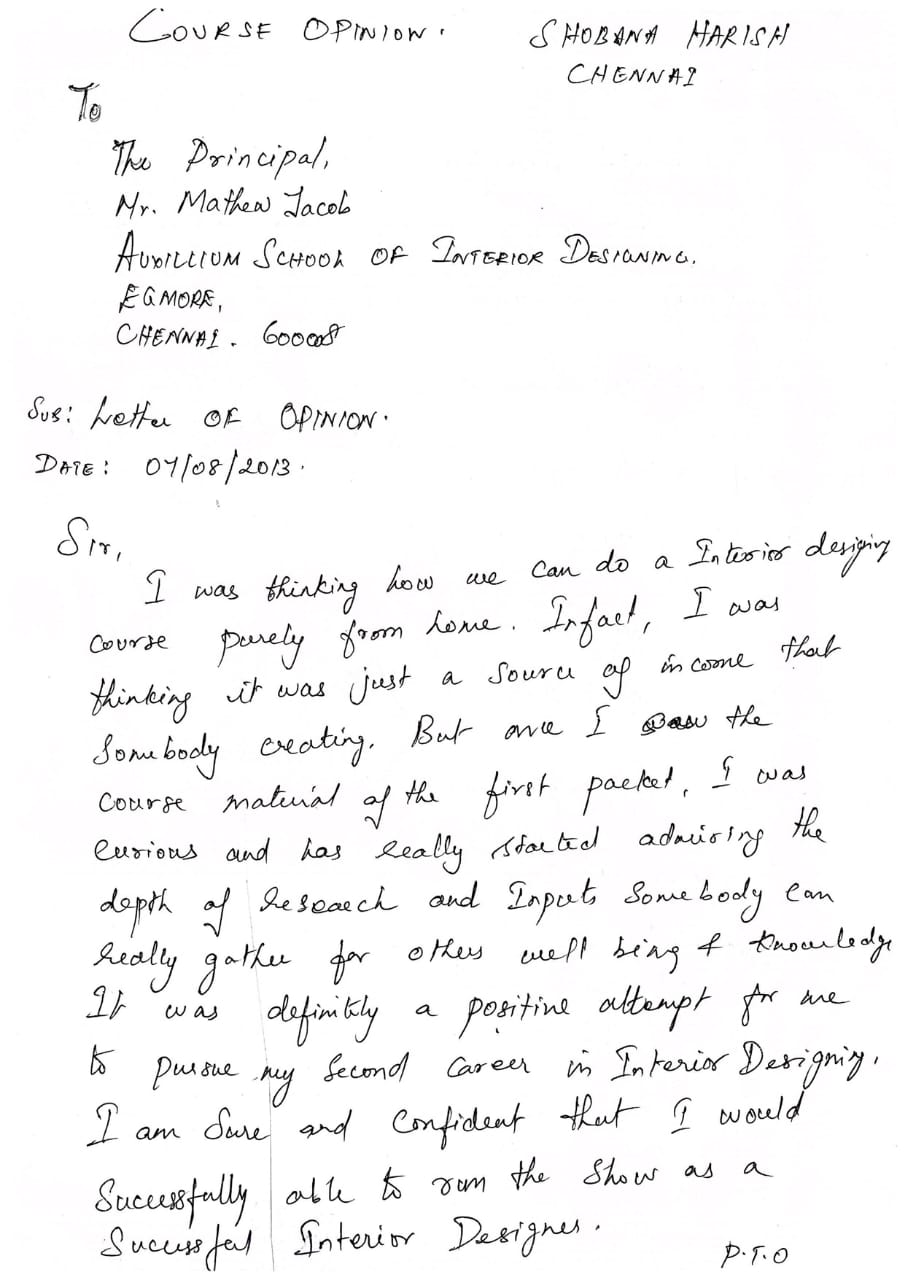 COURSE OPINION.
SHOBANA HARISH
CHENNAI
To
The Principal,
Mr. Mathew Jacob
AUXILLIUM SCHOOL OF INTERIOR DESIGNING.
EGMORE,
CHENNAI. 600008
SUB: Letter OF OPINION.
DATE: 07/08/2013.
Sir,
I was thinking how we can do a Interior desiging
course purely from home. Infact, I was
thinking it was just a source of income that
Somebody creating. But once I saw the
course material of the first packet, I was
curious and has really started admiring the
depth of Research and Inputs Somebody can
really gather for others well being & knowledge
It was definitly a positive attempt for me
to pursue my Second Career in Interior Designing.
I am Sure and Confident that I would
Successfully able to run the Show as a
Sucussful Interior Designer.
P.T.O